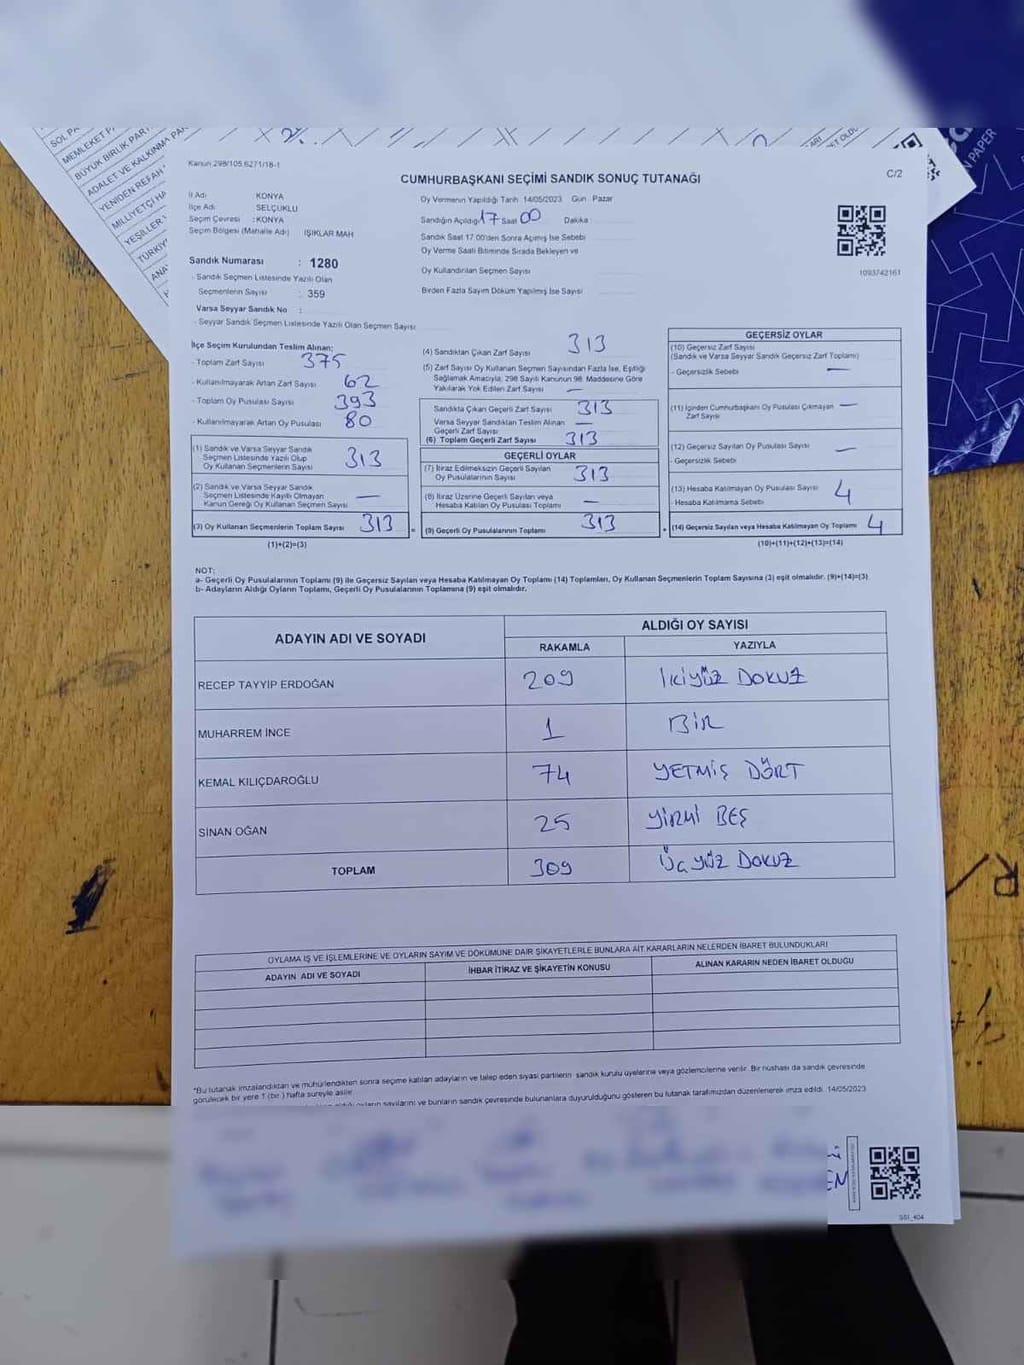 SOL PA
MEMLEKET P
BÜYÜK BİRLİK PART
ADALET VE KALKINMA PAR
YENİDEN REFAH
MİLLİYETÇİ HA
YEŞİLLER
TÜRKİY
ANA
N PAPER
Kanun 298/105,6271/18-1
C/2
CUMHURBAŞKANI SEÇİMİ SANDIK SONUÇ TUTANAĞI
İl Adı : KONYA
İlçe Adı : SELÇUKLU
Seçim Çevresi : KONYA
Seçim Bölgesi (Mahalle Adı) IŞIKLAR MAH
Oy Vermenin Yapıldığı Tarih 14/05/2023 Gün Pazar
Sandığın Açıldığı 17 Saat 00 Dakika
Sandık Saat 17.00'den Sonra Açılmış İse Sebebi
Oy Verme Saati Bitiminde Sırada Bekleyen ve
Oy Kullandırılan Seçmen Sayısı
Birden Fazla Sayım Döküm Yapılmış İse Sayısı
1093742161
Sandık Numarası : 1280
- Sandık Seçmen Listesinde Yazılı Olan
Seçmenlerin Sayısı : 359
Varsa Seyyar Sandık No :
- Seyyar Sandık Seçmen Listesinde Yazılı Olan Seçmen Sayısı
İlçe Seçim Kurulundan Teslim Alınan:
- Toplam Zarf Sayısı 375
- Kullanılmayarak Artan Zarf Sayısı 62
- Toplam Oy Pusulası Sayısı 393
- Kullanılmayarak Artan Oy Pusulası 80
(1) Sandık ve Varsa Seyyar Sandık
Seçmen Listesinde Yazılı Olup
Oy Kullanan Seçmenlerin Sayısı 313
(2) Sandık ve Varsa Seyyar Sandık
Seçmen Listesinde Kayıtlı Olmayan
Kanun Gereği Oy Kullanan Seçmen Sayısı —
(3) Oy Kullanan Seçmenlerin Toplam Sayısı 313 =
(1)+(2)=(3)
(4) Sandıktan Çıkan Zarf Sayısı 313
(5) Zarf Sayısı Oy Kullanan Seçmen Sayısından Fazla İse, Eşitliği
Sağlamak Amacıyla; 298 Sayılı Kanunun 98. Maddesine Göre
Yakılarak Yok Edilen Zarf Sayısı —
Sandıkta Çıkan Geçerli Zarf Sayısı 313
Varsa Seyyar Sandıktan Teslim Alınan
Geçerli Zarf Sayısı —
(6) Toplam Geçerli Zarf Sayısı 313
GEÇERLİ OYLAR
(7) İtiraz Edilmeksizin Geçerli Sayılan
Oy Pusulalarının Sayısı 313
(8) İtiraz Üzerine Geçerli Sayılan veya
Hesaba Katılan Oy Pusulası Toplamı —
(9) Geçerli Oy Pusulalarının Toplamı 313 +
GEÇERSİZ OYLAR
(10) Geçersiz Zarf Sayısı
(Sandık ve Varsa Seyyar Sandık Geçersiz Zarf Toplamı)
- Geçersizlik Sebebi —
(11) İçinden Cumhurbaşkanı Oy Pusulası Çıkmayan —
Zarf Sayısı
(12) Geçersiz Sayılan Oy Pusulası Sayısı —
- Geçersizlik Sebebi
(13) Hesaba Katılmayan Oy Pusulası Sayısı 4
Hesaba Katılmama Sebebi
(14) Geçersiz Sayılan veya Hesaba Katılmayan Oy Toplamı 4
(10)+(11)+(12)+(13)=(14)
NOT:
a- Geçerli Oy Pusulalarının Toplamı (9) ile Geçersiz Sayılan veya Hesaba Katılmayan Oy Toplamı (14) Toplamları, Oy Kullanan Seçmenlerin Toplam Sayısına (3) eşit olmalıdır. (9)+(14)=(3)
b- Adayların Aldığı Oyların Toplamı, Geçerli Oy Pusulalarının Toplamına (9) eşit olmalıdır.
ADAYIN ADI VE SOYADI
ALDIĞI OY SAYISI
RAKAMLA YAZIYLA
RECEP TAYYİP ERDOĞAN 209 İKİYÜZ DOKUZ
MUHARREM İNCE 1 BİR
KEMAL KILIÇDAROĞLU 74 YETMİŞ DÖRT
SİNAN OĞAN 25 YİRMİ BEŞ
TOPLAM 309 ÜÇ YÜZ DOKUZ
OYLAMA İŞ VE İŞLEMLERİNE VE OYLARIN SAYIM VE DÖKÜMÜNE DAİR ŞİKAYETLERLE BUNLARA AİT KARARLARIN NELERDEN İBARET BULUNDUKLARI
ADAYIN ADI VE SOYADI İHBAR İTİRAZ VE ŞİKAYETİN KONUSU ALINAN KARARIN NEDEN İBARET OLDUĞU
*Bu tutanak imzalandıktan ve mühürlendikten sonra seçime katılan adayların ve talep eden siyasi partilerin sandık kurulu üyelerine veya gözlemcilerine verilir. Bir nüshası da sandık çevresinde
görülecek bir yere 1 (bir) hafta süreyle asılır.
oyların sayılarını ve bunların sandık çevresinde bulunanlara duyurulduğunu gösteren bu tutanak tarafımızdan düzenlenerek imza edildi. 14/05/2023
SSI_404